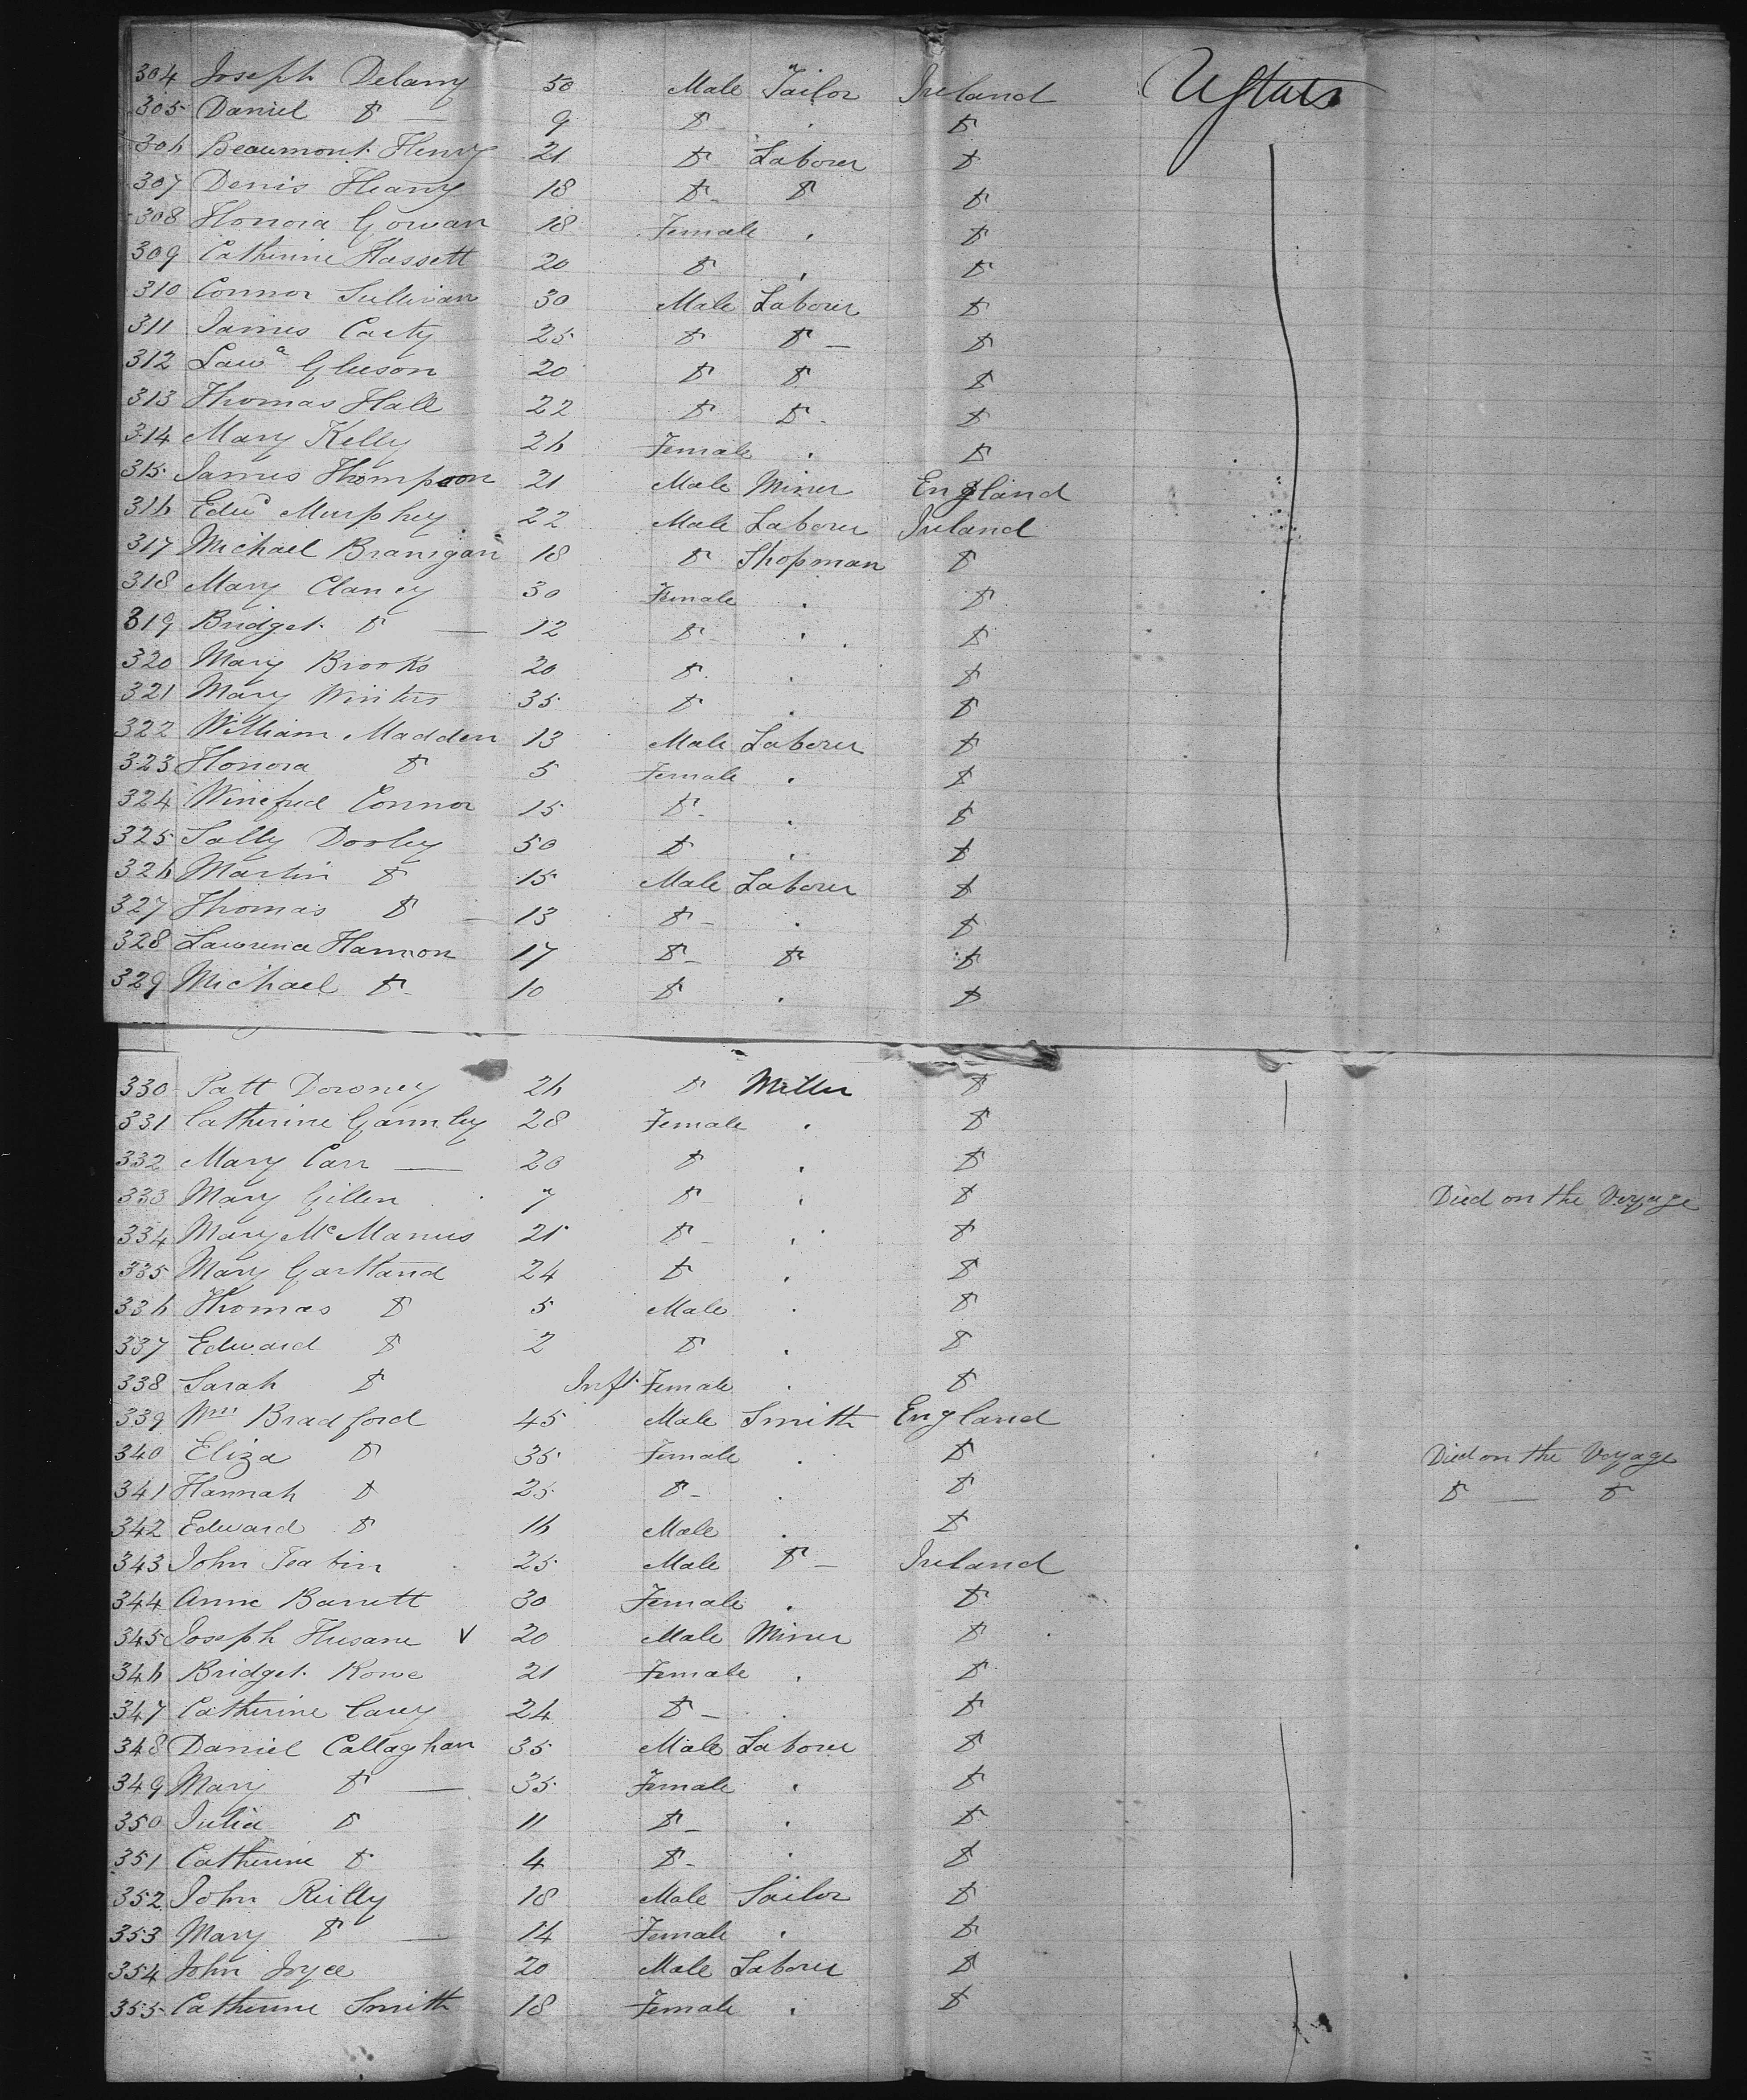 304 Joseph Delany 50 Male Tailor Ireland U States
305 Daniel Do — 9 Do Do
306 Beaumont Henry 21 Do Laborer Do
307 Denis Heany 18 Do Do Do
308 Honora Gowan 18 Female Do
309 Catherine Hassett 20 Do Do
310 Connor Sullivan 30 Male Laborer Do
311 James Carty 25 Do Do — Do
312 Lawe Gleeson 20 Do Do Do
313 Thomas Hall 22 Do Do Do
314 Mary Kelly 26 Female Do
315 James Thompson 21 Male Miner England
316 Edwd Murphey 22 Male Laborer Ireland
317 Michael Branigan 18 Do Shopman Do
318 Mary Clancy 30 Female Do
319 Bridget Do — 12 Do Do
320 Mary Brooks 20 Do Do
321 Mary Winters 35 Do Do
322 William Madden 13 Male Laborer Do
323 Honora Do 5 Female Do
324 Winefred Connor 15 Do Do
325 Sally Dooley 50 Do Do
326 Martin Do 15 Male Laborer Do
327 Thomas Do — 13 Do Do
328 Lawrence Hannon 17 Do Do Do
329 Michael Do 10 Do Do
330 Patt Downey 26 Do Miller Do
331 Catherine Gormley 28 Female Do
332 Mary Carr — 20 Do Do
333 Mary Gillen 7 Do Do Died on the Voyage
334 Mary McManus 21 Do Do
335 Mary Gartland 24 Do Do
336 Thomas Do 5 Male Do
337 Edward Do 2 Do Do
338 Sarah Do Inft Female Do
339 Wm Bradford 45 Male Smith England
340 Eliza Do 35 Female Do Died on the Voyage
341 Hannah Do 25 Do Do Do — Do
342 Edward Do 16 Male Do
343 John 25 Male Do — Ireland
344 Anne Barrett 30 Female Do
345 Joseph V 20 Male Miner Do
346 Bridget Rowe 21 Female Do
347 Catherine Carey 24 Do Do
348 Daniel Callaghan 35 Male Laborer Do
349 Mary Do — 35 Female Do
350 Julia Do 11 Do Do
351 Catherine Do 4 Do Do
352 John Reilly 18 Male Tailor Do
353 Mary Do — 14 Female Do
354 John Joyce 20 Male Laborer Do
355 Catherine Smith 18 Female Do